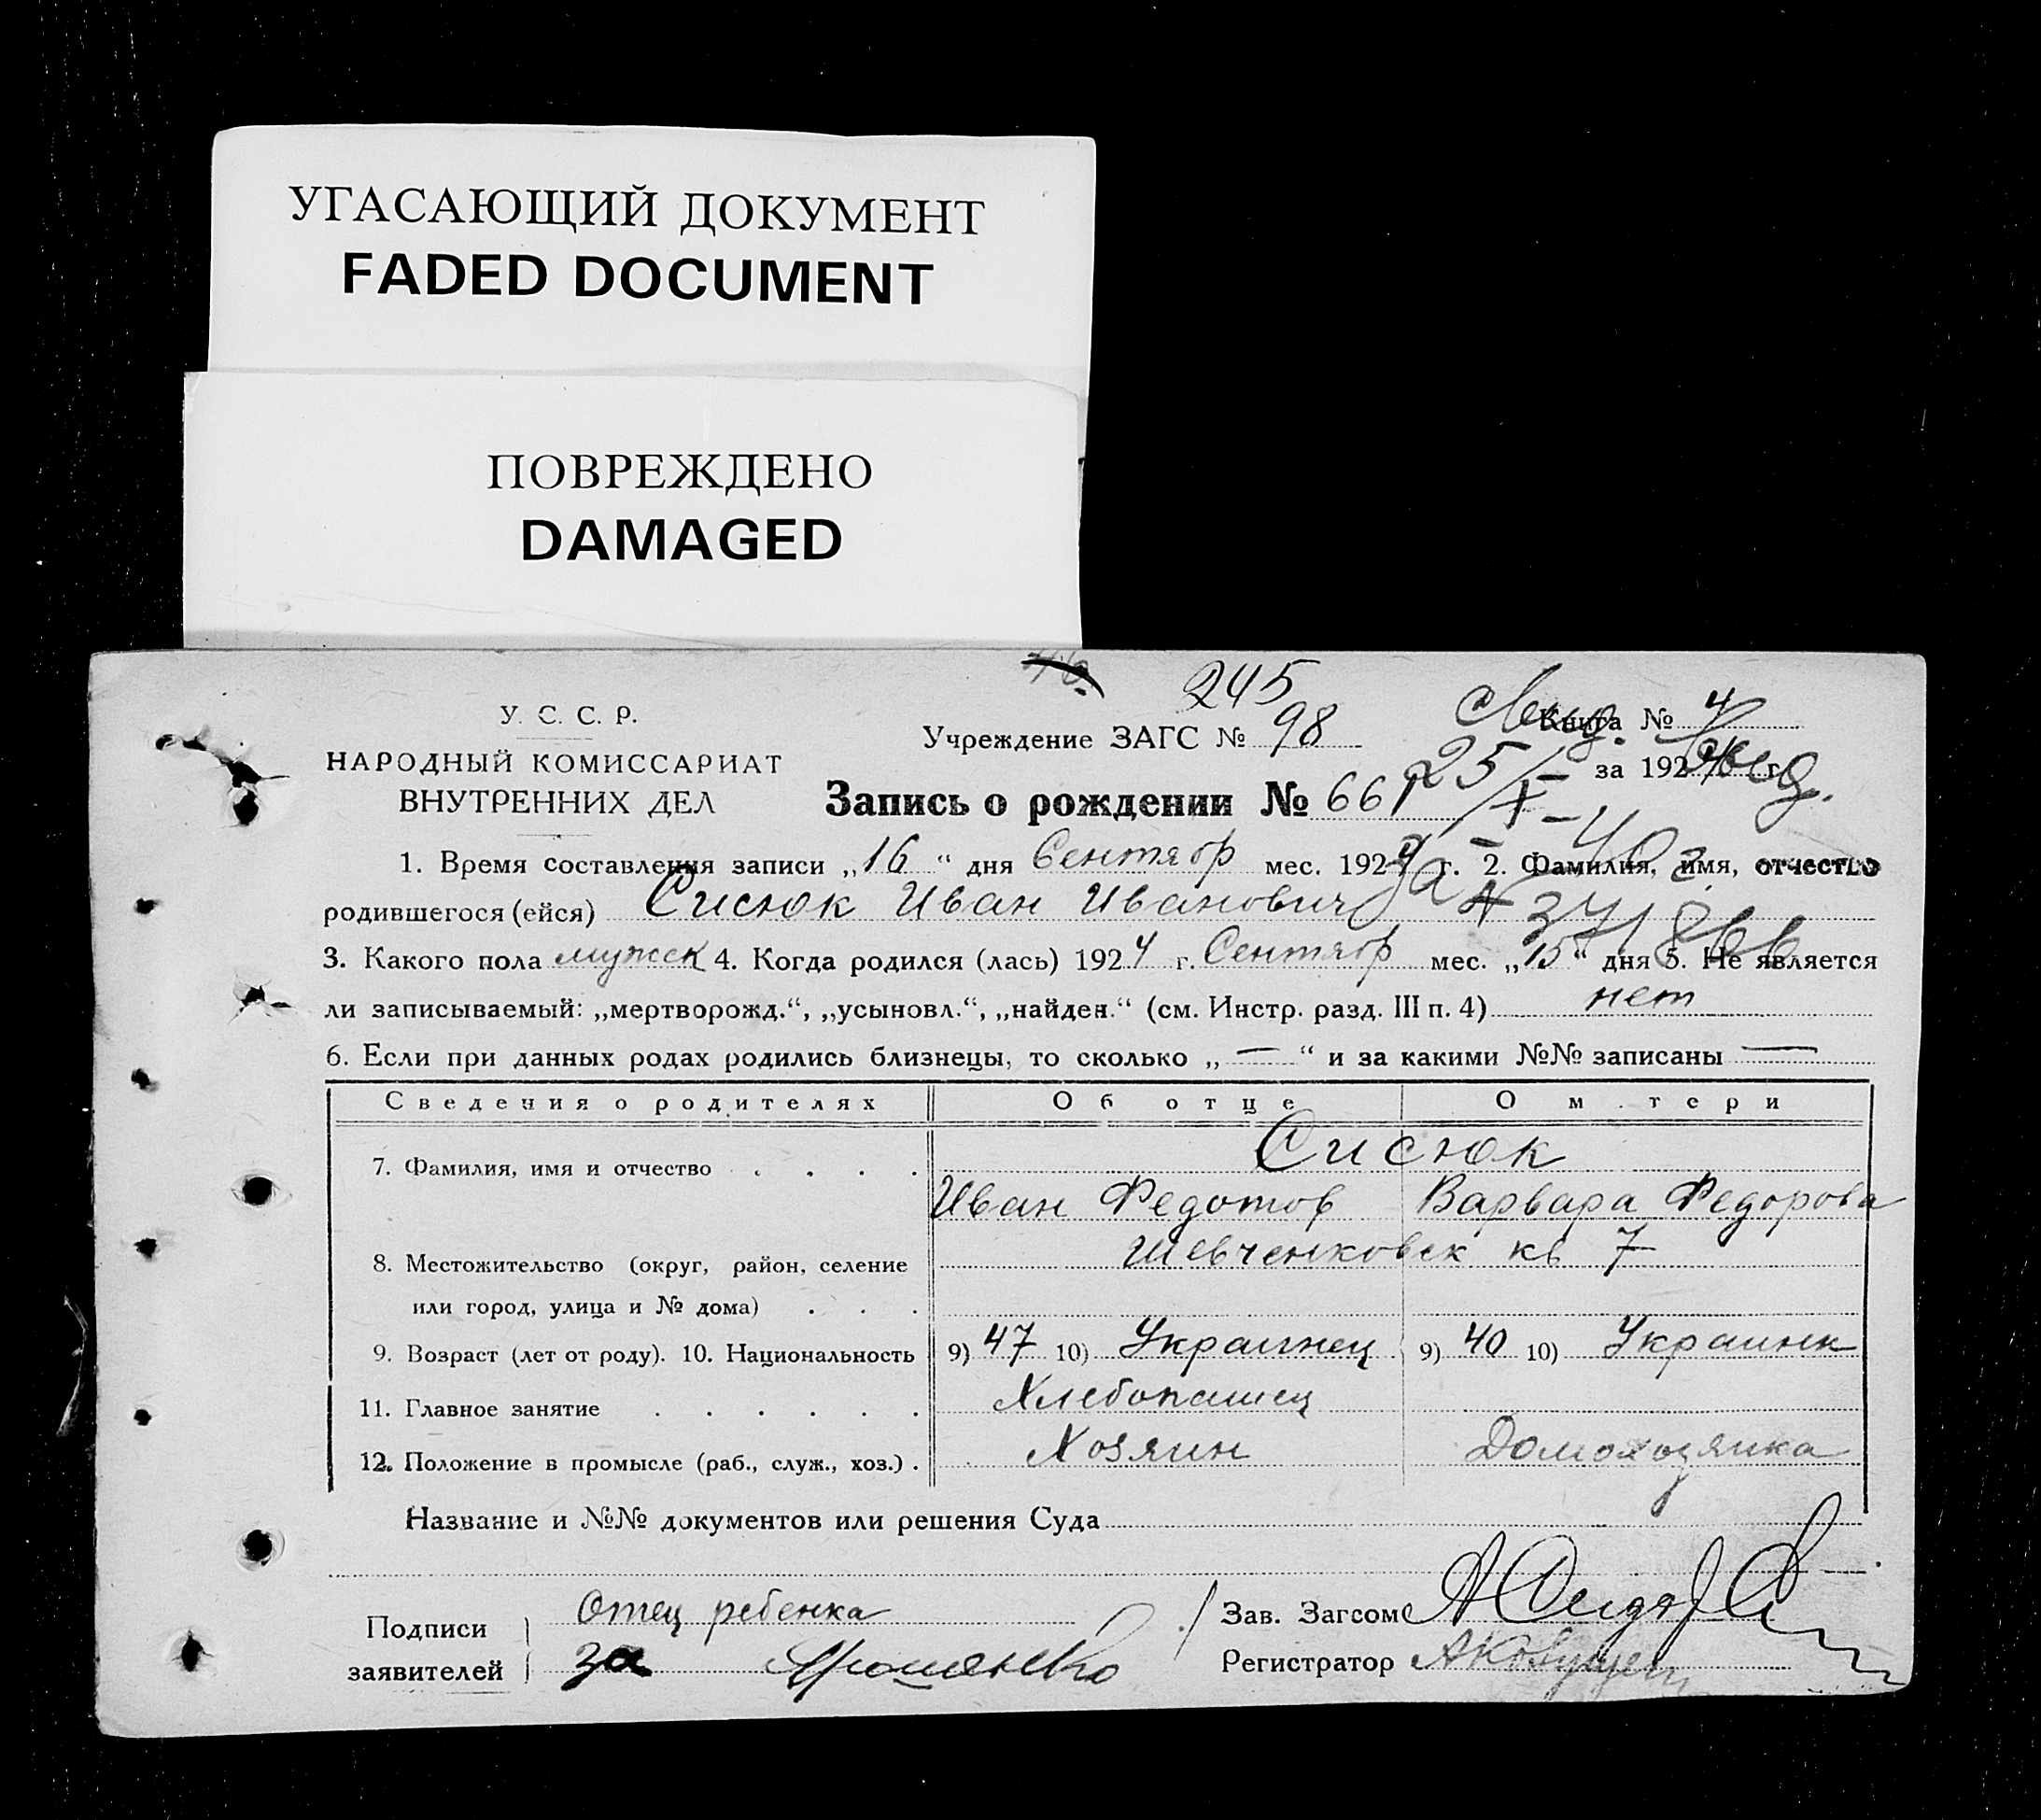 УГАСАЮЩИЙ ДОКУМЕНТ
FADED DOCUMENT
ПОВРЕЖДЕНО
DAMAGED
245
У. С. С. Р.
НАРОДНЫЙ КОМИССАРИАТ
ВНУТРЕННИХ ДЕЛ
Учреждение ЗАГС № 98
Книга № 4
за 192 г.
Запись о рождении № 661
25/X – 40 г.
1. Время составления записи „16“ дня Сентябр мес. 1924 г. 2. Фамилия, имя, отчество
родившегося (ейся) Сисюк Иван Иванович
3. Какого пола мужск 4. Когда родился (лась) 1924 г. Сентябр мес. „15“ дня 5. Не является
ли записываемый: „мертворожд.“, „усыновл.“, „найден.“ (см. Инстр. разд. III п. 4) нет
6. Если при данных родах родились близнецы, то сколько „—“ и за какими №№ записаны —
Сведения о родителях Об отце О м тери
7. Фамилия, имя и отчество . . . . Сисюк
Иван Федотов Варвара Федорова
8. Местожительство (округ, район, селение Шевченковск кв 7
или город, улица и № дома) . . .
9. Возраст (лет от роду). 10. Национальность 9) 47 10) Украинец 9) 40 10) Украинк
11. Главное занятие . . . . . . Хлебопашец
12. Положение в промысле (раб., служ., хоз.) . Хозяин Домохозяика
Название и №№ документов или решения Суда
Подписи
заявителей
Отец ребенка
за
Зав. Загсом
Регистратор